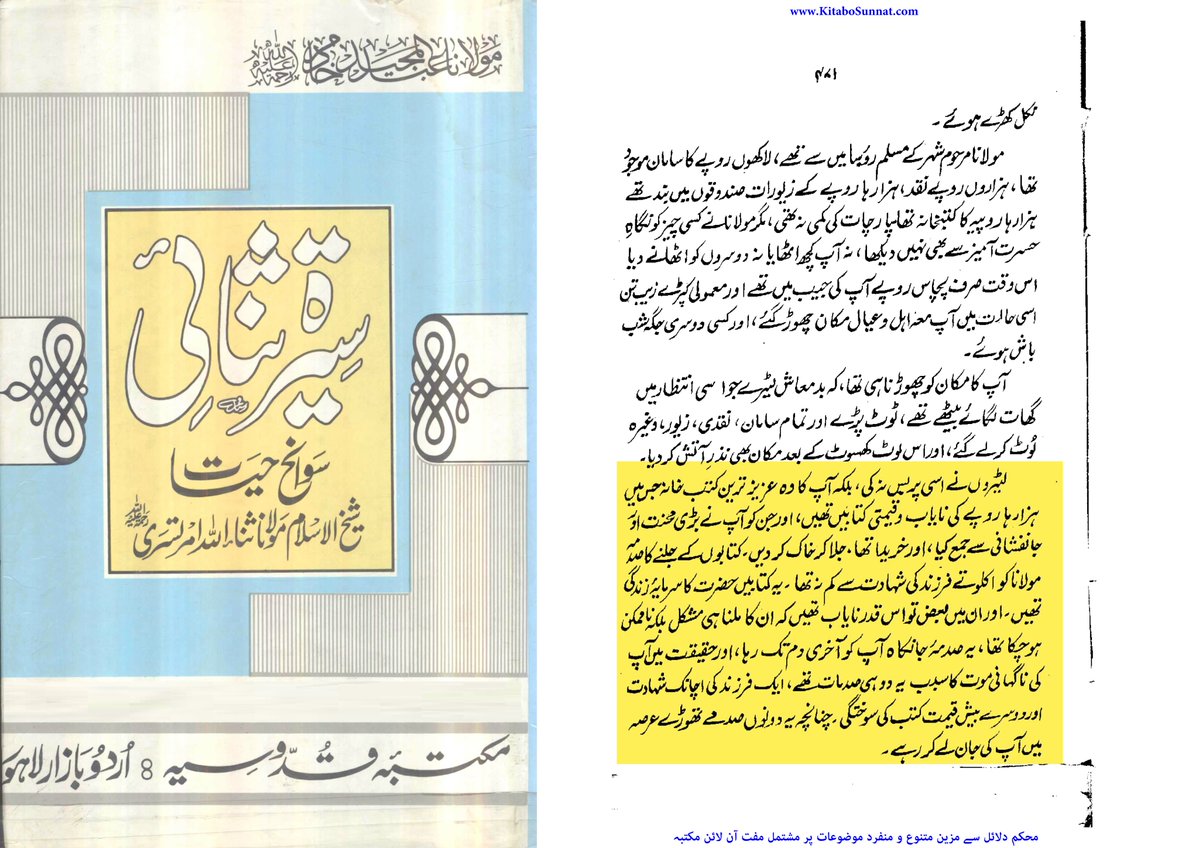 مولانا عبدالمجید خادم رحمۃ اللہ علیہ
سیرۃ ثنائی
سوانح حیات
شیخ الاسلام مولانا ثناء اللہ امرتسری رحمۃ اللہ علیہ
مکتبہ قدوسیہ 8 اردو بازار لاہور
www.KitaboSunnat.com
نکل کھڑے ہوئے۔
مولانا مرحوم شہر کے مسلم رؤسا میں سے تھے، لاکھوں روپے کا سامان موجود
تھا، ہزاروں روپے نقد، ہزارہا روپے کے زیورات صندوقوں میں بند تھے
ہزارہا روپیہ کا کتبخانہ تھا۔ پارچات کی کمی نہ تھی، مگر مولانا نے کسی چیز کو نگاہِ
حسرت آمیز سے بھی نہیں دیکھا، نہ آپ کچھ اٹھایا نہ دوسروں کو اٹھانے دیا
اس وقت صرف پچاس روپے آپ کی جیب میں تھے اور معمولی کپڑے زیب تن
اسی حالت میں آپ معہ اہل و عیال مکان چھوڑ گئے، اور کسی دوسری جگہ شب
باش ہوئے۔
آپ کا مکان کو چھوڑنا ہی تھا، کہ بدمعاش لٹیرے جو اسی انتظار میں
گھات لگائے بیٹھے تھے، ٹوٹ پڑے اور تمام سامان، نقدی، زیور، وغیرہ
لوٹ کر لے گئے، اور اس لوٹ کھسوٹ کے بعد مکان بھی نذرِ آتش کر دیا۔
لٹیروں نے اسی پر بس نہ کی، بلکہ آپ کا وہ عزیز ترین کتب خانہ جس میں
ہزارہا روپے کی نایاب و قیمتی کتابیں تھیں، اور جن کو آپ نے بڑی محنت اور
جانفشانی سے جمع کیا، اور خریدا تھا۔ جلا کر خاک کر دیں۔ کتابوں کے جلنے کا صدمہ
مولانا کو اکلوتے فرزند کی شہادت سے کم نہ تھا۔ یہ کتابیں حضرت کا سرمایۂ زندگی
تھیں۔ اور ان میں بعض تو اس قدر نایاب تھیں کہ ان کا ملنا ہی مشکل بلکہ ناممکن
ہو چکا تھا، یہ صدمۂ جانکاہ آپ کو آخری دم تک رہا، اور حقیقت میں آپ
کی ناگہانی موت کا سبب یہ دو ہی صدمات تھے، ایک فرزند کی اچانک شہادت
اور دوسرے بیش قیمت کتب کی سوختگی۔ چنانچہ یہ دونوں صدمے تھوڑے عرصہ
میں آپ کی جان لے کر رہے۔
محکم دلائل سے مزین متنوع و منفرد موضوعات پر مشتمل مفت آن لائن مکتبہ